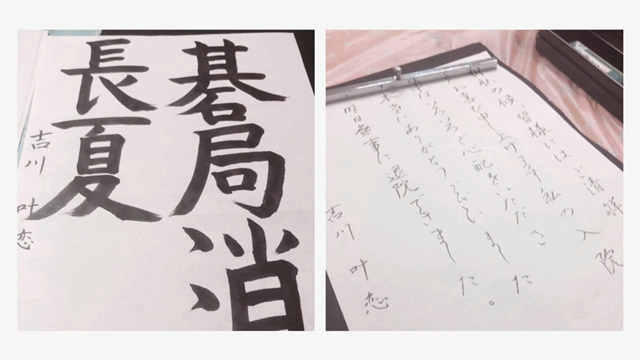 碁局消
長夏
吉川 叶恋
の候、皆様にはご清祥
申し上げます 私の入院
はいろいろと心配をいただき
本当にありがとうございました。
昨日無事に退院できました。
吉川 叶恋